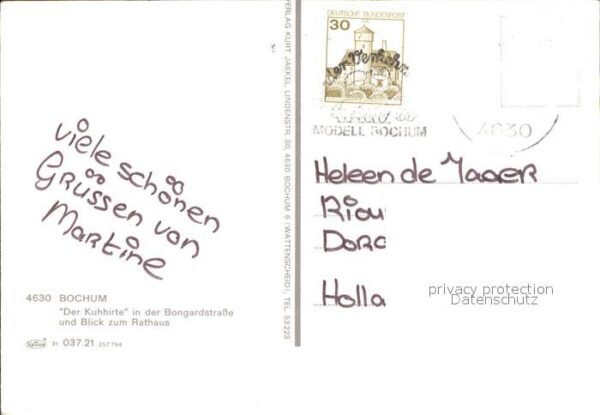 viele schönen
Grüssen von
Martine
4630 BOCHUM
"Der Kuhhirte" in der Bongardstraße
und Blick zum Rathaus
31 037.21 257794
VERLAG KURT JAEKEL, LINDENSTR. 30, 4630 BOCHUM 6 (WATTENSCHEID), TEL. 53223
DEUTSCHE BUNDESPOST
30
der Verkehr
MODELL BOCHUM
4630
Heleen de Jager
Riou
Dorc
Holla
privacy protection
Datenschutz